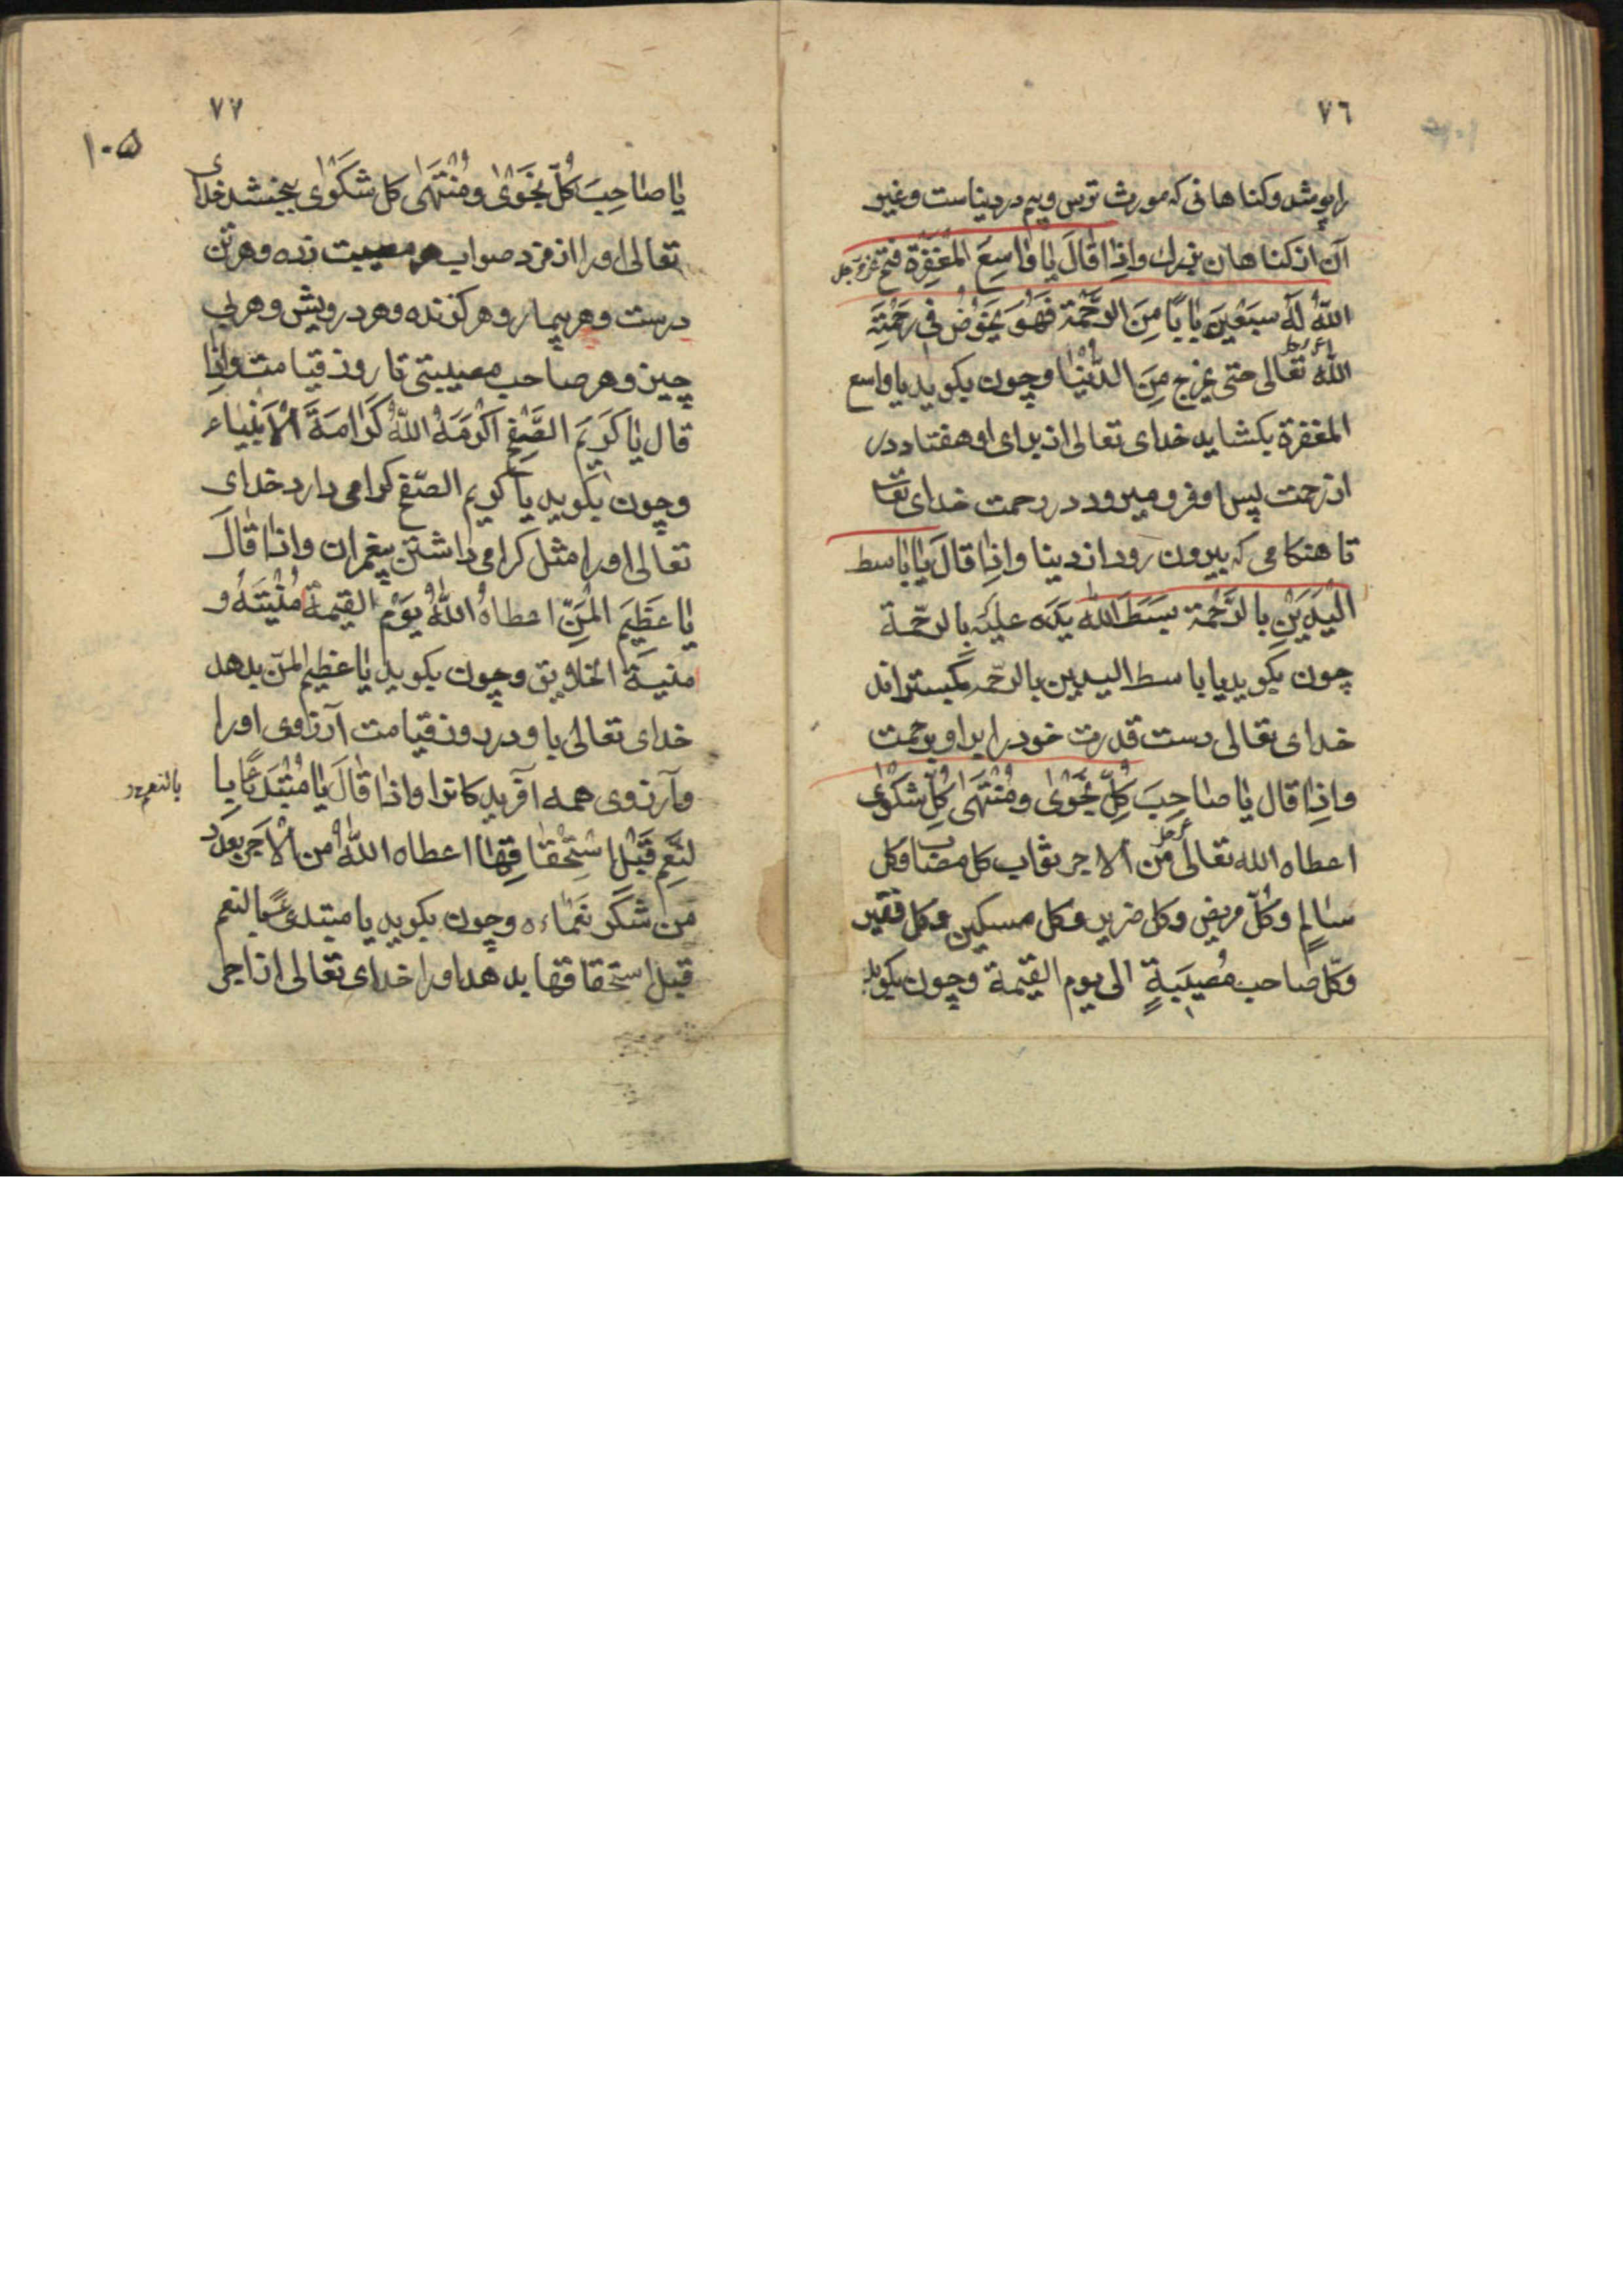 ٧٦
را بپوشد و کناهانی که مورث ترس و بیم در دنیاست و غیر
آن از کناهان بزرك وَاِذا قالَ یا واسِعَ المَغْفِرَةِ فتح عز و جل
اللّهُ لَهُ سَبْعینَ باباً مِنَ الرَّحْمَة فَهُوَ یَخوُضُ فی رَحْمَتِهِ
اللّه تعالی حتی یخرج مِنَ الدُّنْیا و چون بکوید یا واسع
عز و جل
المغفرة بکشاید خدای تعالی از برای او هفتاد در
از رحمت پس او فرو میرود در رحمت خدای تعا
تا هنکامی که بیرون رود از دنیا وَاِذا قالَ یا باسط
الْیَدَیْنِ بالرَّحْمَة بَسَطَ اللّه یَدَه علیَه بالرحّمة
چون بکوید یا باسط الیدین بالرحّمه بکستراند
خدای تعالی دست قدرت خود را بر او برحمت
وَاِذا قال یا صاحِبَ کُلِّ نَجْوٰی و مُنْتَهٰی کُلِّ شَکْوٰی
اعطاه الله تعالی من الاجر ثواب کل مصاب و کل
عز و جل
سالِمٍ و کُلّ مریض و کل ضریر و کل مسکین و کل فقیر
و کلّ صاحب مُصیبَةٍ الی یوم القیمة و چون بکوید
٧٧
١٠٥
یا صاحِبَ کُلّ نَجْوٰی و مُنْتَهٰی کل شَکْوٰی ببخشد خدای
تعالی او را از مزد صواب هر مصیبت زده و هر تن
درست و هر بیمار و هر کزنده و هر درویش و هر بی
چیز و هر صاحب مصیبتی تا روز قیامت وَاِذا
قال یا کَریمَ الصَّفْحِ اَکْرَمَهُ اللّهُ کَرامَةَ الْاَنْبِیاء
و چون بکوید یا کریم الصّفح کرامی دارد خدای
تعالی او را مثل کرامی داشتن پیغمران واذا قالَ
یا عَظیمَ الْمَنِّ اعطاهُ اللّهُ یَوْم القیمة مُنْیَتَهُ و
منیة الخلایق و چون بکوید یا عظیم المنّ بدهد
خدای تعالی باو در روز قیامت آرزوی او را
و آرزوی همه آفریدکانرا واذا قالَ یا مُبْتَدِئاً بِا
بالنعم
لنِعَم قَبْلَ اسْتِحْقاقِها اعطاه اللّهُ من الْاَجر بعدد
مَن شَکَر نَعْماءه و چون بکوید یا مبتدئاً بالنعم
قبل استحقاقها بدهد او را خدای تعالی از اجر